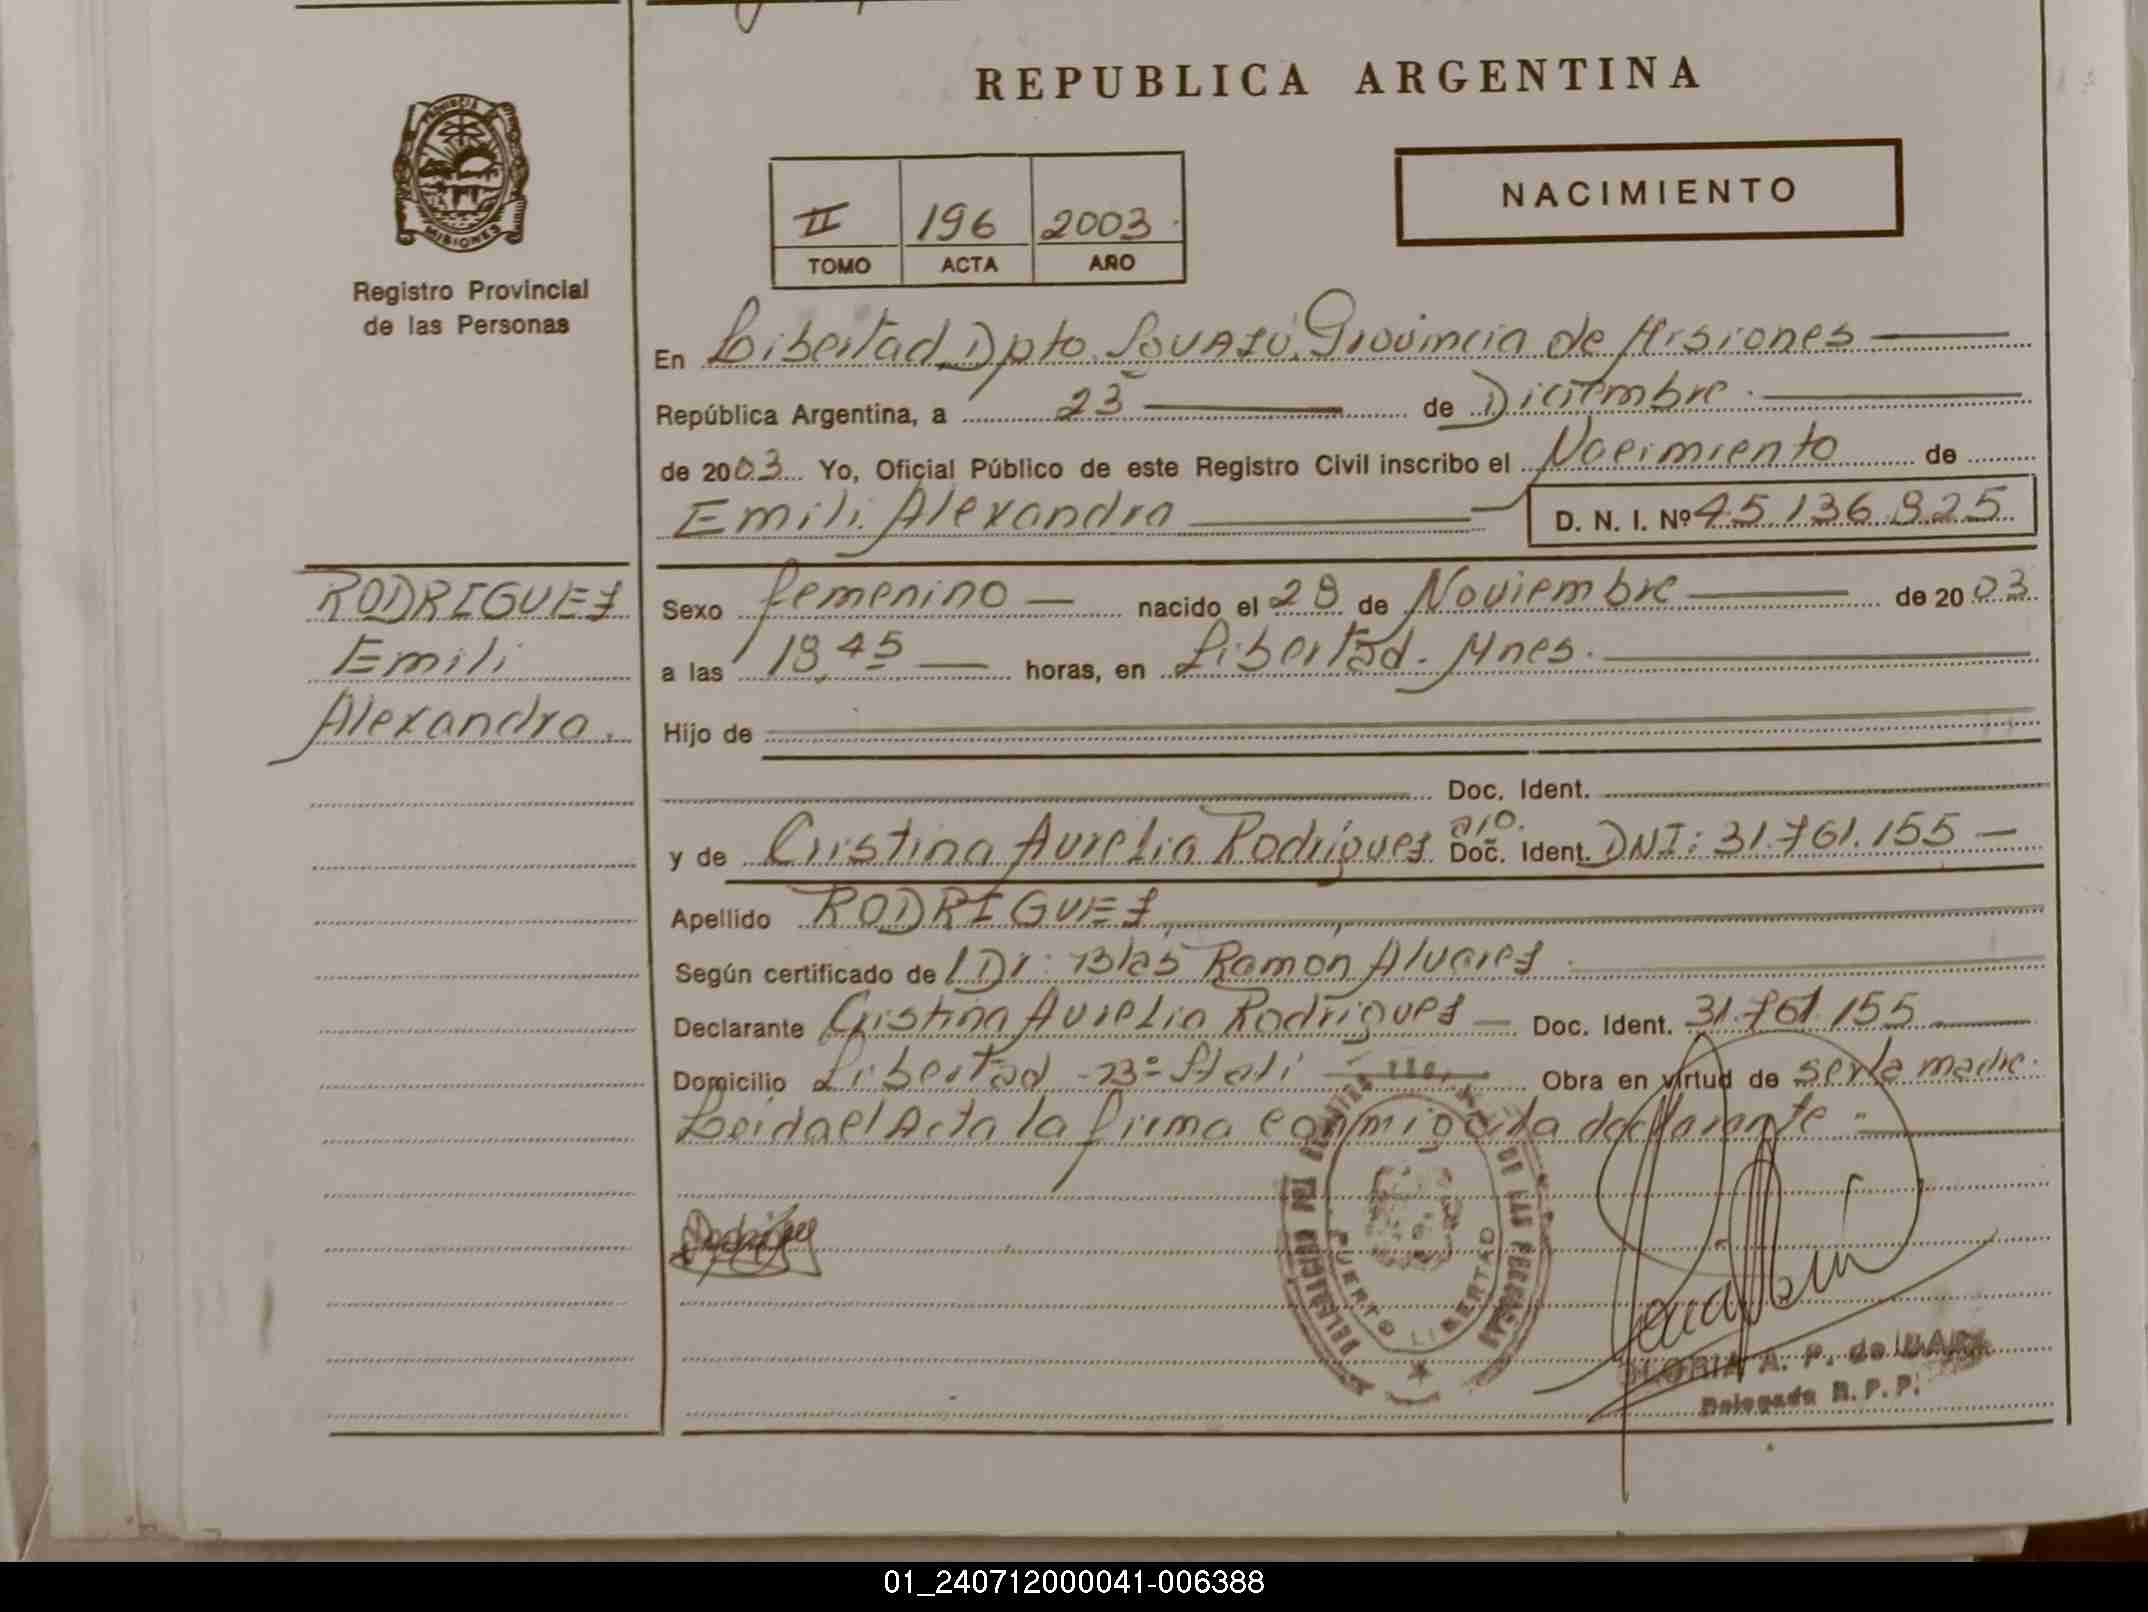 REPUBLICA ARGENTINA
PROVINCIA DE
MISIONES
Registro Provincial
de las Personas
II 196 2003
TOMO ACTA AÑO
NACIMIENTO
En Libertad Dpto. Iguazú Provincia de Misiones
República Argentina, a 23 de Diciembre
de 2003 Yo, Oficial Público de este Registro Civil inscribo el Nacimiento de
Emili Alexandra D. N. I. Nº 45.136.825
RODRIGUEZ
Emili
Alexandra.
Sexo femenino nacido el 28 de Noviembre de 2003
a las 18,45 horas, en Libertad. Mnes.
Hijo de
Doc. Ident.
y de Cristina Aurelia Rodríguez Doc. Ident. DNI: 31.761.155
Apellido RODRIGUEZ
Según certificado de Dr: Blas Ramon Alvarez
Declarante Cristina Aurelia Rodríguez Doc. Ident. 31.761.155
Domicilio Libertad Obra en virtud de ser la madre.
Leida el Acta la firma conmigo la declarante
PUERTO LIBERTAD
DE LAS PERSONAS
GLORIA A. P. de
Delegada R. P. P.
01_240712000041-006388